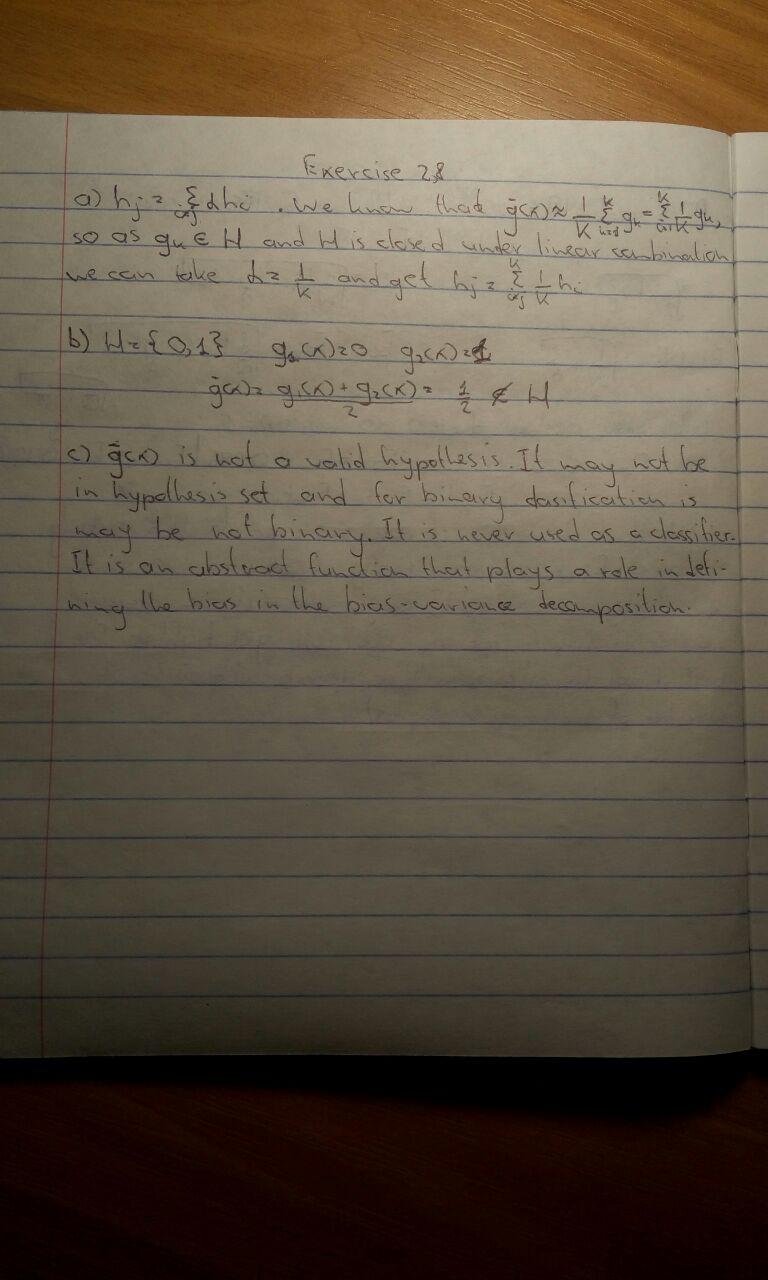 Exercise 2.8
a) hj = Σ i≠j αhi . We know that ḡ(x) ≈ 1/K Σ k=1 K gk = Σ i=1 K 1/K gk,
so as gk ∈ H and H is closed under linear combination
we can take α = 1/K and get hj = Σ i≠j K 1/K hi
b) H = {0,1} g1(x)=0 g2(x)=1
ḡ(x) = g1(x) + g2(x) / 2 = 1/2 ∉ H
c) ḡ(x) is not a valid hypothesis. It may not be
in hypothesis set and for binary clasification is
may be not binary. It is never used as a classifier.
It is an abstract function that plays a role in defi-
ning the bias in the bias-variance decomposition.